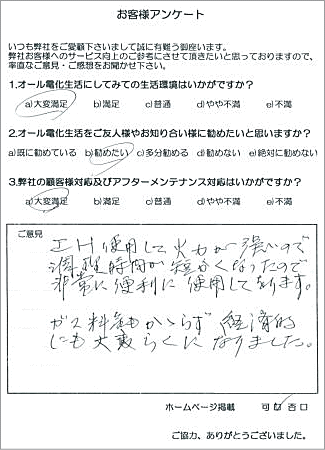 お客様アンケート
いつも弊社をご愛顧下さいまして誠に有難う御座います。
弊社お客様へのサービス向上のご参考にさせて頂きたいと思っておりますので、
率直なご意見・ご感想をお聞かせ下さい。
1.オール電化生活にしてみての生活環境はいかがですか？
a)大変満足 b)満足 c)普通 d)やや不満 e)不満
2.オール電化生活をご友人様やお知り合い様に勧めたいと思いますか？
a)既に勧めている b)勧めたい c)多分勧める d)勧めない e)絶対に勧めない
3.弊社の顧客様対応及びアフターメンテナンス対応はいかがですか？
a)大変満足 b)満足 c)普通 d)やや不満 e)不満
ご意見
IH使用して火力が強いので
調理時間が短かくなったので
非常に便利に使用しております。
ガス料金もかからず経済的
にも大変らくになりました。
ホームページ掲載 可 否
ご協力、ありがとうございました。